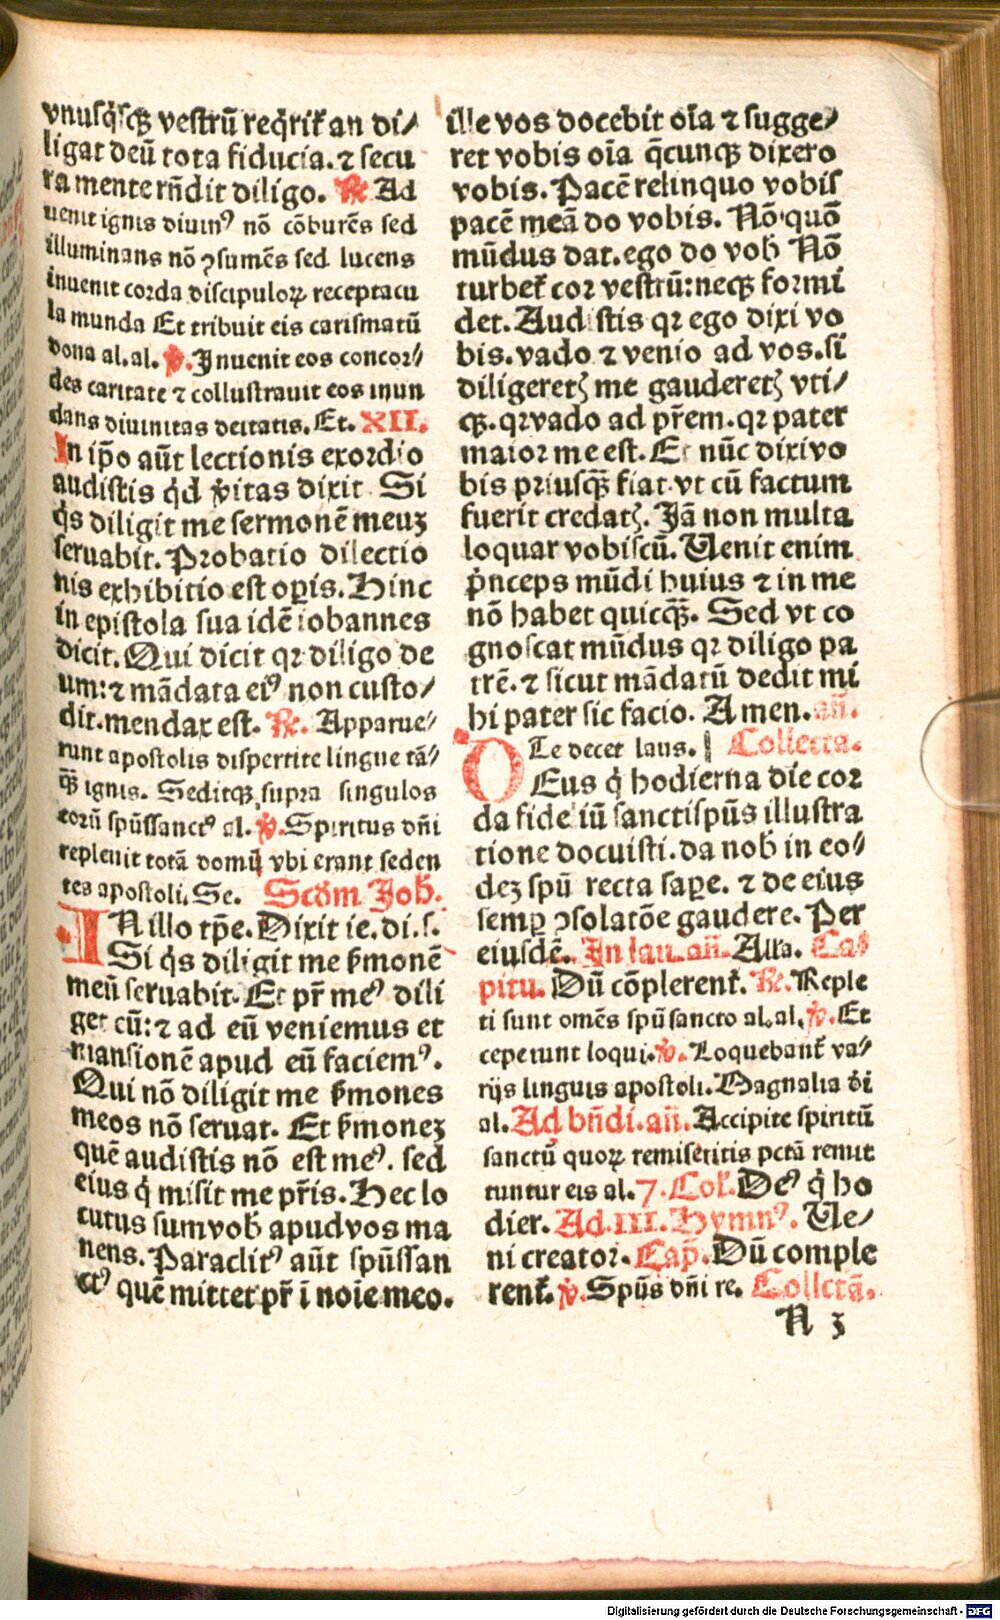 vnusq̃sqꝫ vestrũ req̃rit᷑ an di⸗
ligat deũ tota fiducia. ⁊ secu
ra mente rñdit diligo. ℟ Ad
uenit ignis diuinꝰ nõ cõburẽs sed
illuminans nõ ꝯsumẽs sed lucens
inuenit corda discipuloꝝ receptacu
la munda Et tribuit eis carismatũ
dona al. al. ℣. Inuenit eos concor⸗
des caritate ⁊ collustrauit eos inun
dans diuinitas deitatis. Et. XII.
In ip̃o aũt lectionis exordio
audistis q̃d v̾itas dixit Si
q̃s diligit me sermonẽ meuꝫ
seruabit. Probatio dilectio
nis exhibitio est oꝑis. Hinc
in epistola sua idẽ iohannes
dicit. Qui dicit qꝛ diligo de
um: ⁊ mãdata eiꝰ non custo⸗
dit. mendax est. ℟. Apparue⸗
runt apostolis dispertite lingue tã⸗
qꝫ̃ ignis. Seditqꝫ supra singulos
eorũ spũssanctꝰ al. ℣. Spiritus dñi
repleuit totã domũ vbi erant seden
tes apostoli. Se. Scd̃m Joh̃.
IN illo tp̃e. Dixit ie. di. s.
Si q̃s diligit me s̾monẽ
meũ seruabit. Et pr̃ meꝰ dili
get eũ: ⁊ ad eũ veniemus et
mansionẽ apud eũ faciemꝰ.
Qui nõ diligit me s̾mones
meos nõ seruat. Et s̾monez
quẽ audistis nõ est meꝰ. sed
eius q̃ misit me pr̃is. Hec lo
cutus sum vob̃ apud vos ma
nens. Paraclitꝰ aũt spũssan
ctꝰ quẽ mittet pr̃ ĩ noĩe meo.
ille vos docebit oĩa ⁊ sugge⸗
ret vobis oĩa q̃cunqꝫ dixero
vobis. Pacẽ relinquo vobis
pacẽ meã do vobis. Nõ quõ
mũdus dat. ego do vob̃ Nõ
turbet᷑ cor vestrũ: neqꝫ formi
det. Audistis qꝛ ego dixi vo
bis. vado ⁊ venio ad vos. si
diligeretꝭ me gauderetꝭ vti⸗
qꝫ. qꝛ vado ad pr̃em. qꝛ pater
maior me est. Et nũc dixi vo
bis priusqꝫ̃ fiat. vt cũ factum
fuerit credatꝭ. Jã non multa
loquar vobiscũ. Uenit enim
p̃nceps mũdi huius ⁊ in me
nõ habet quicqꝫ̃. Sed vt co
gnoscat mũdus qꝛ diligo pa
trẽ. ⁊ sicut mãdatũ dedit mi
hi pater sic facio. Amen. añ.
Te decet laus. Collecta.
DEus q̃ hodierna die cor
da fideliũ sanctispũs illustra
tione docuisti. da nob̃ in eo⸗
dez spũ recta saꝑe. ⁊ de eius
semꝑ ꝯsolatõe gaudere. Per
eiusdẽ. In lau. añ. Alla. Ca⸗
pitu. Dũ cõplerent᷑. ℟. Reple
ti sunt omẽs spũ sancto al. al. ℣. Et
ceperunt loqui. ℣. Loquebant᷑ va⸗
rijs linguis apostoli. Magnalia d̾i
al. Ad bñdi. añ. Accipite spiritũ
sanctũ quoꝝ remiseritis pctã remit
tuntur eis al. 7. Col̃. Deꝰ q̃ ho
dier. Ad. III. Hymnꝰ. Ue⸗
ni creator. Cap̃. Dũ comple
rent᷑. ℣. Spũs dñi re. Collectã.
N 3
Digitalisierung gefördert durch die Deutsche Forschungsgemeinschaft - DFG